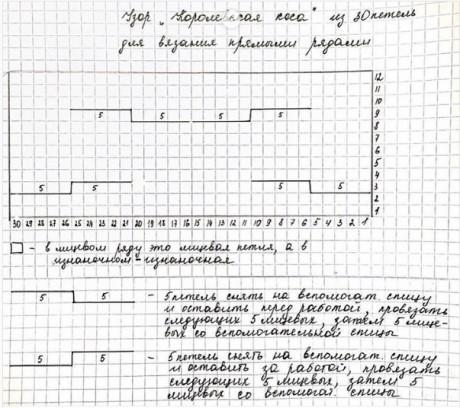 Узор „Королевская коса" из 30 петель
для вязания прямыми рядами
12
11
10
5 5 9
5 5 8
7
6
5
4
5 5 3
5 5 2
1
30 29 28 27 26 25 24 23 22 21 20 19 18 17 16 15 14 13 12 11 10 9 8 7 6 5 4 3 2 1
- в лицевом ряду это лицевая петля, а в
изнаночном - изнаночная
5 5 - 5 петель снять на вспомогат. спицу
и оставить перед работой, провязать
следующих 5 лицевых, затем 5 лице-
вых со вспомогательной спицы
5 5 - 5 петель снять на вспомогат. спицу
и оставить за работой, провязать
следующих 5 лицевых, затем 5
лицевых со вспомогат. спицы